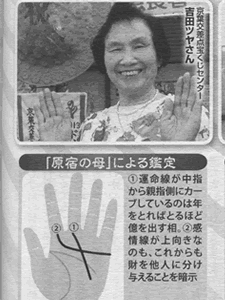 京葉交差点宝くじセンター
吉田ツヤさん
「原宿の母」による鑑定
①運命線が中指
から親指側にカー
ブしているのは年
をとればとるほど
億を出す相。②感
情線が上向きな
のも、これからも
財を他人に分け
与えることを暗示
② ①